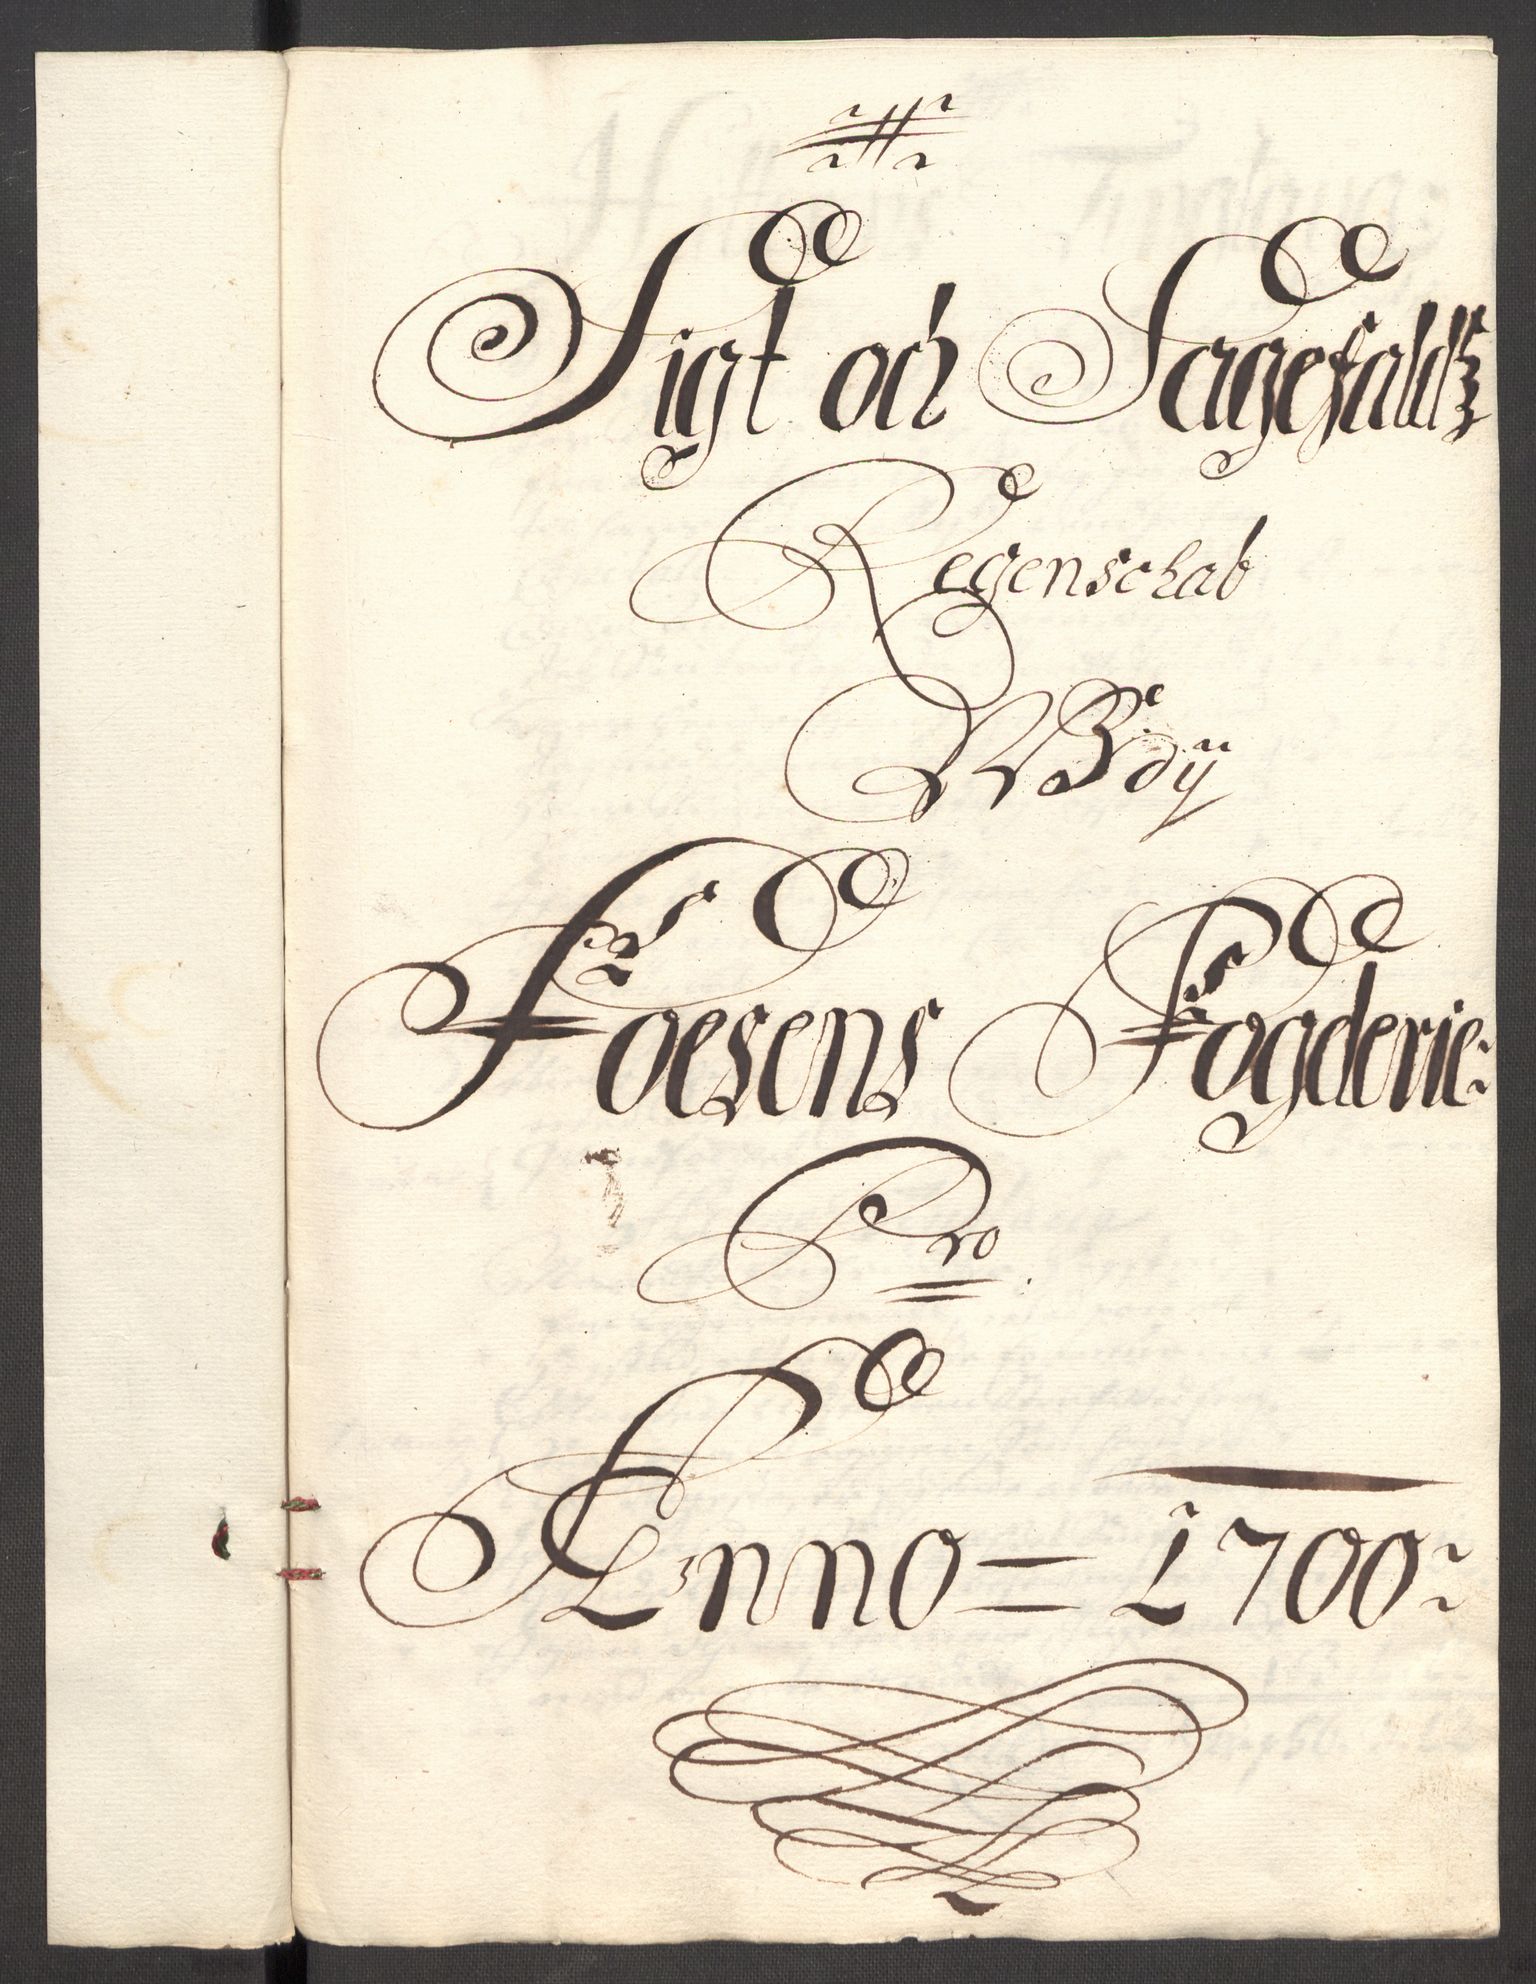 Sigt och Sagefaldtz
Regenschab
Foesens Fogderie:
Pro
Anno = 1700: